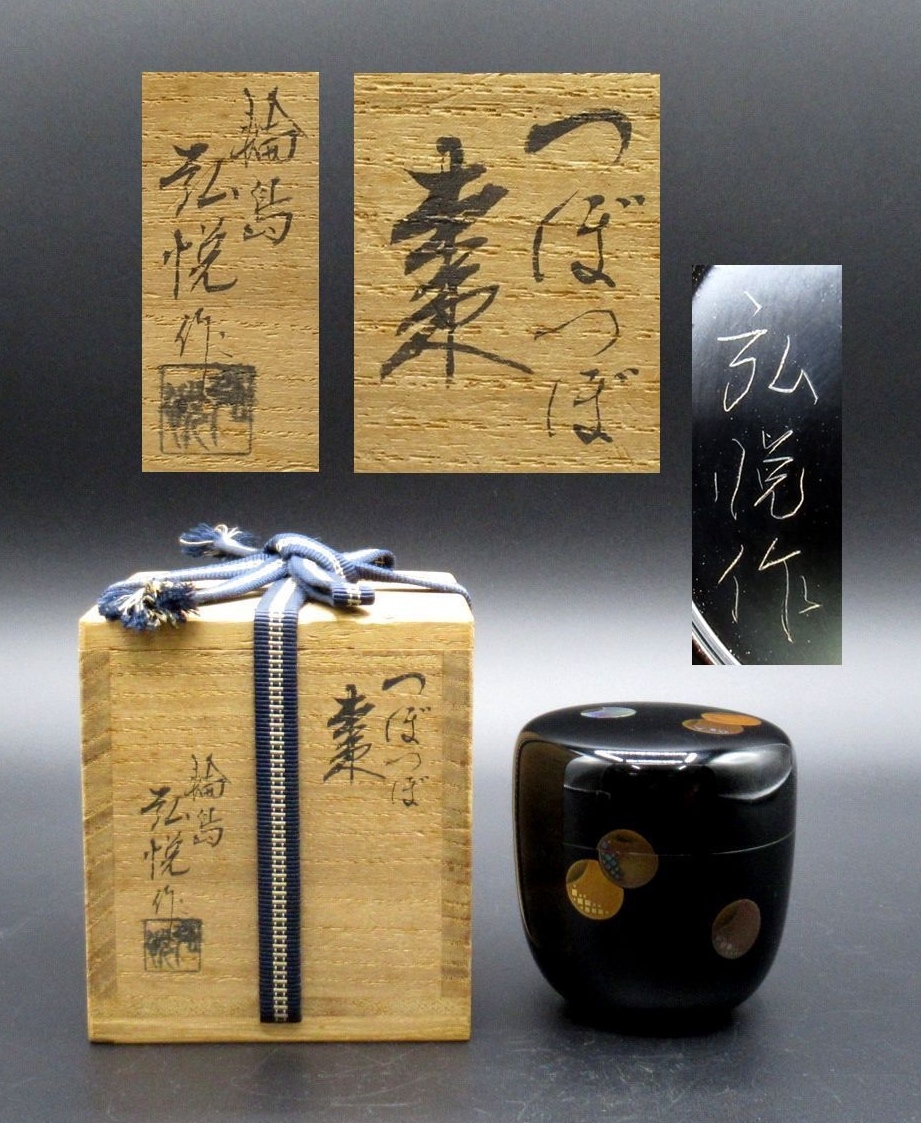 輪島
弘悦
作
つぼつぼ
棗
弘悦作
つぼつぼ
棗
輪島
弘悦
作